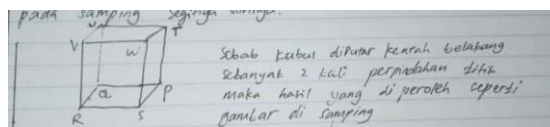 pada samping
V W T
Sebab kubus diputar kearah belakang
Sebanyak 2 kali perpindahan titik
Q P maka hasil yang di peroleh ceperti
R S gambar di samping